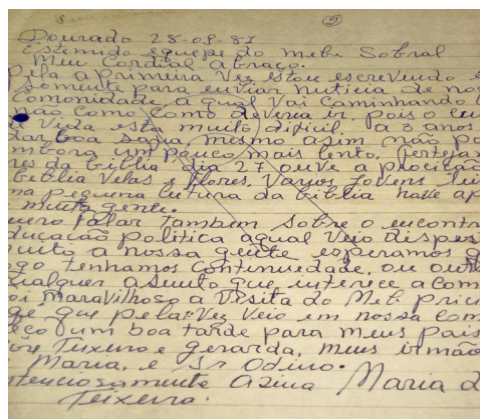 ②
Dourado 28-09-83
Estemido equipe do meb Sobral
Meu Cordial abraço.
pela a primeira Vez estou escrevendo
somente para enviar nuticia de nos
Comunidade, a qual Vai Caminhando
não como como deveria ir, pois o
a Vida esta muito dificil, a 3 anos
dar boa safra mesmo asim não
embora um pouco mais lento, festejan
res da biblia dia 27 ouve a procição
biblia Velas e flores, Varios Jovens
ma pequena leitura da biblia
muita gente.
uero falar tambem sobre o encontr
ducação politica aqual Veio
muito a nossa gente esperamos
go tenhamos Continuidade, ou out
ualquer asunto que interece a com
oi maravilhoso a Visita do Meb
ge que pela Vez Veio em nossa Com
eço um boa tarde para meus pais
Teixera e gerarda, meus irmão
Maria, e Odino.
tenciosamente Asina Maria d
Teixeira.